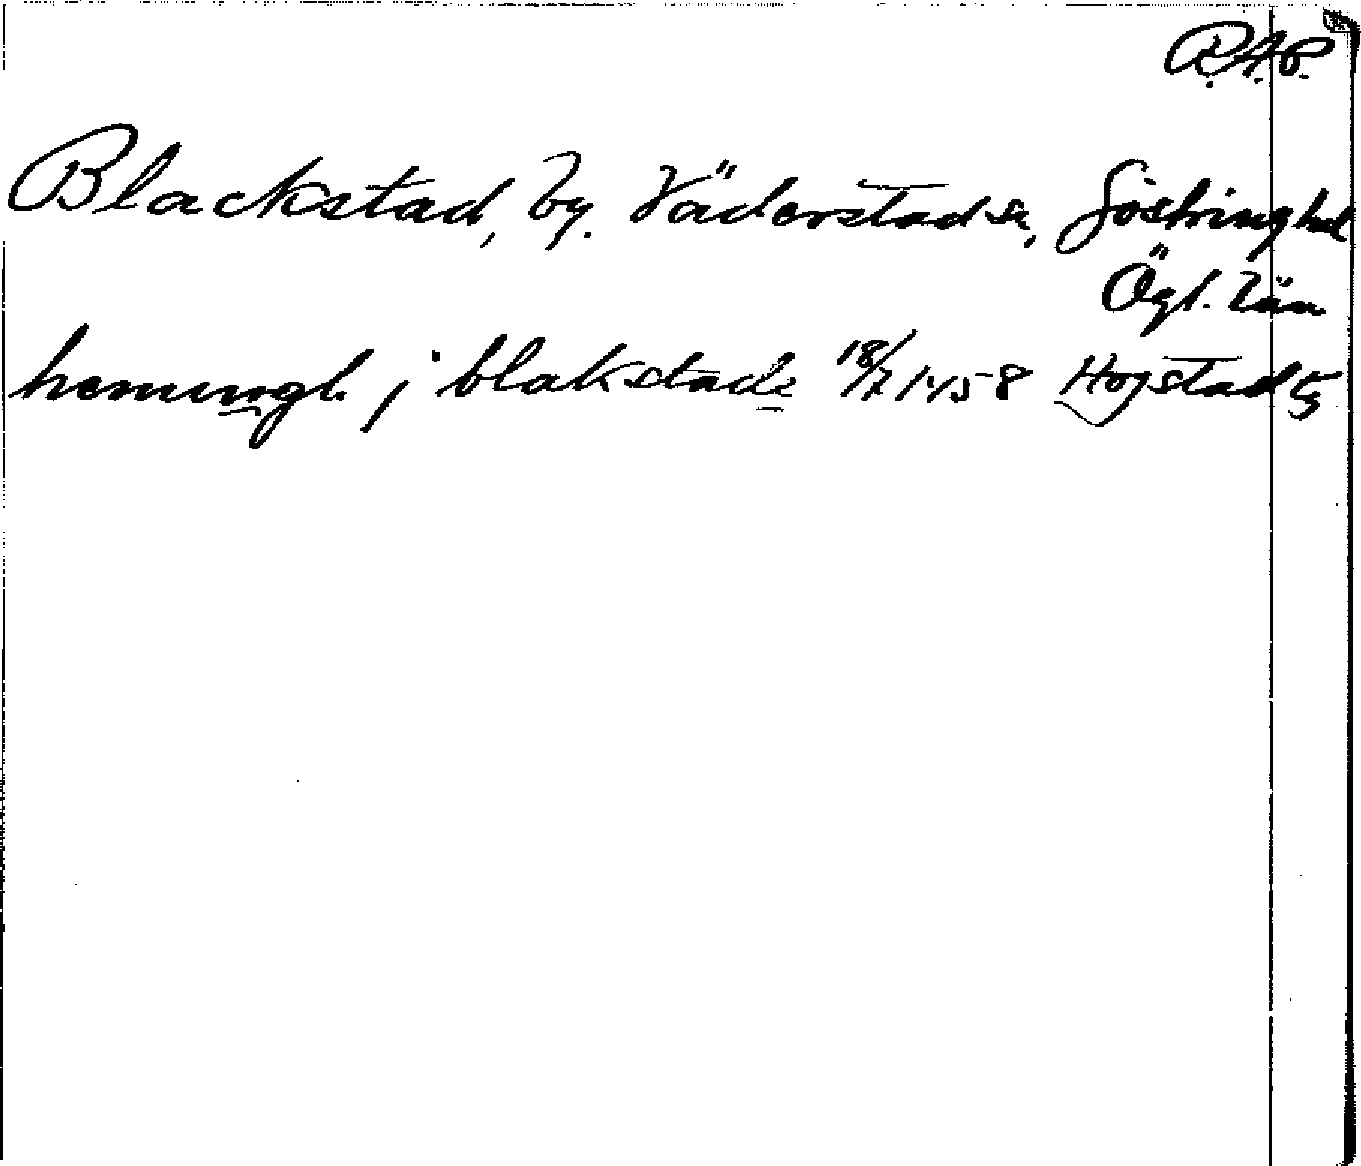 R.A.P.
Blackstad, by. Väderstad sn, Göstring hd
Ögl. län
hemingh j blakstade 18/7 1458 Hogstad tg